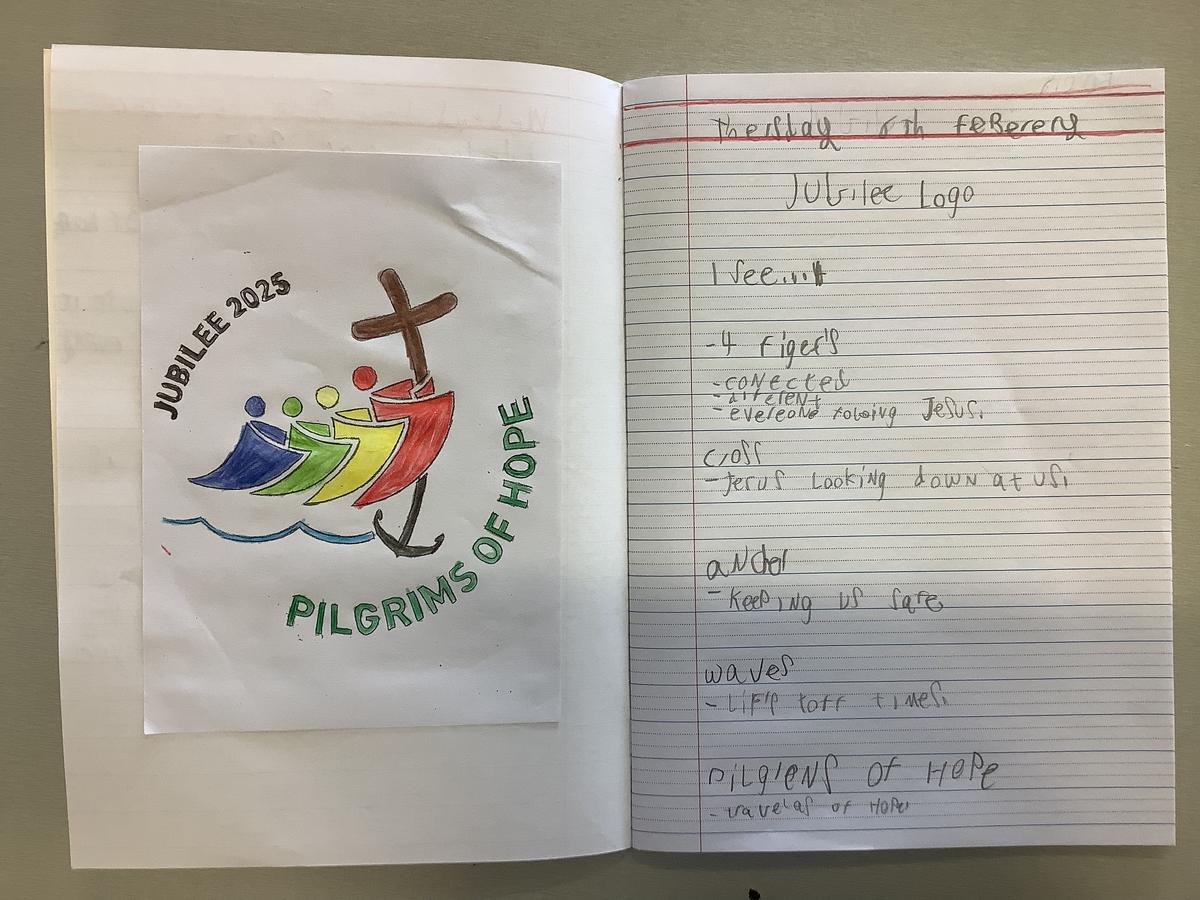 JUBILEE 2025
PILGRIMS OF HOPE
Thersday 6th FeBerery
Jubilee Logo
I see....
-4 Figer's
-conected
-different
-evereone folowing Jesus.
cross
-Jesus Looking down at us.
anchor
-Keeping us safe
waves
-Lif's toff times.
Pilgrens of Hope
- of Hope